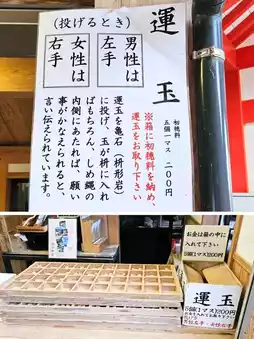 運玉
初穂料
五個一マス 二〇〇円
※箱に初穂料を納め、
運玉をお取り下さい
(投げるとき)
男性は
左手
女性は
右手
運玉を亀石(枡形岩)
に投げ、玉が枡に入れ
ばもちろん、しめ縄の
内側にあたれば、願い
事がかなえられると、
言い伝えられています。
お金は箱の中に
入れて下さい
運玉
5個(1マス)200円